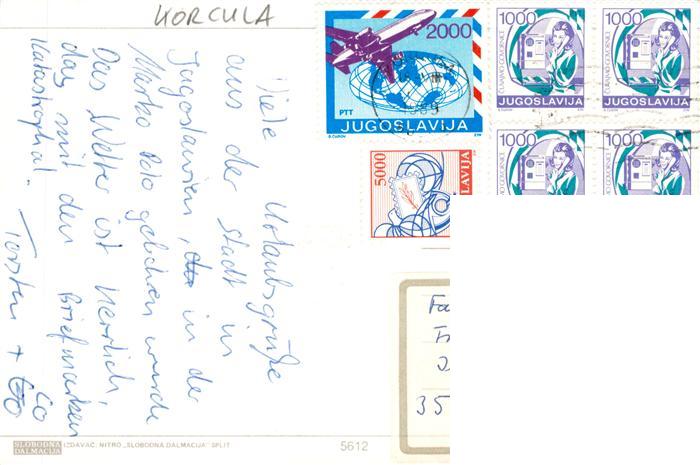 KORCULA
Viele Urlaubsgrüße
aus der Stadt in
Jugoslawien, in der
Marko Polo geboren wurde
Das Wetter ist herrlich,
das mit den Briefmarken
katastrophal.
Torsten +
2000
PTT
JUGOSLAVIJA
1989
1000
JUGOSLAVIJA
1000
JUGOSLAVIJA
1000
1000
5000
LAVIJA
35
SLOBODNA
DALMACIJA
IZDAVAČ: NITRO „SLOBODNA DALMACIJA" SPLIT
5612